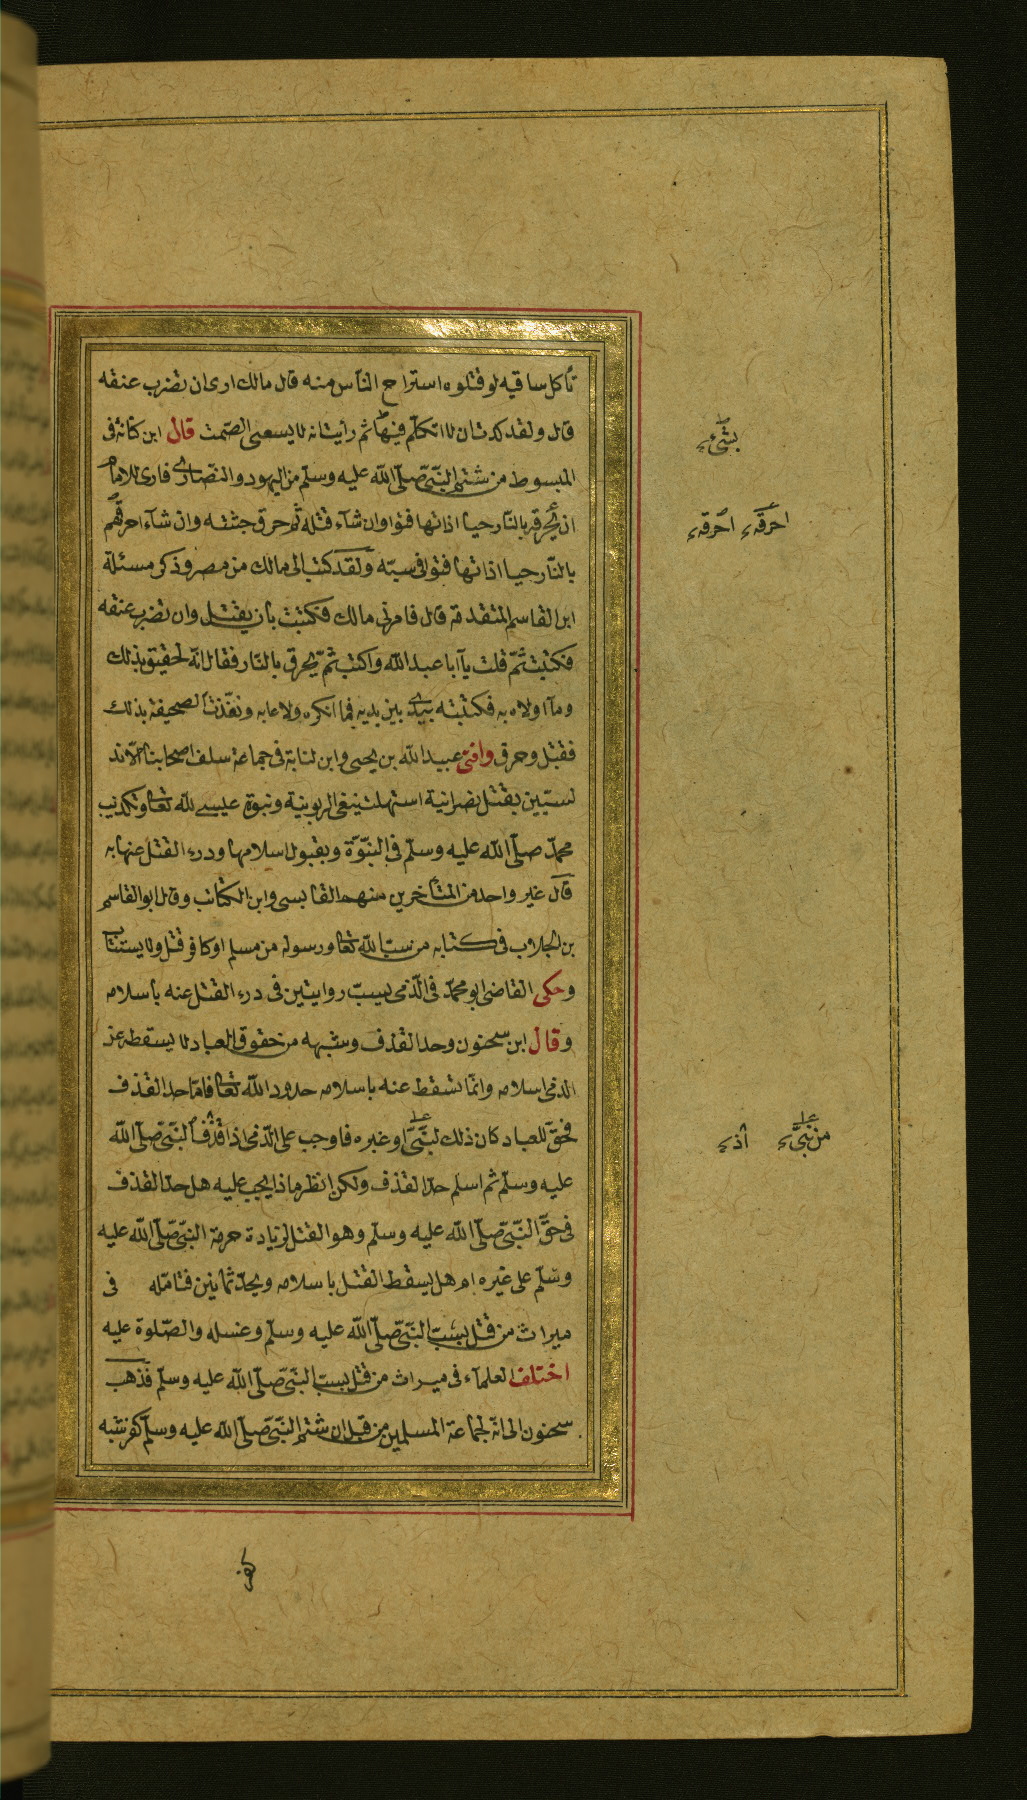 تأكل ساقيه لو قتلوه استراح الناس منه قال مالك ارى ان تضرب عنقه
قال ولقد كدت ان لا اتكلم فيها ثم رأيت انه لا يسعنى الصمت قال ابن كنانة فى
المبسوط من شتم النبى صلى الله عليه وسلم من اليهود والنصارى فارى للامام
ان يحرقه بالنار حيا اذا تهافتوا وان شآء قتله ثم حرق جثته وان شآء احرقهم
بالنار حيا اذا تهافتوا فى سبه ولقد كتب الى مالك من مصر وذكر مسئلة
ابن القاسم المتقدمة قال فامرنى مالك فكتبت بان يقتل وان تضرب عنقه
فكتبت ثم قلت يآ ابا عبد الله واكتب ثم يحرق بالنار فقال انه لحقيق بذلك
ومآ اولاه به فكتبته بيدى بين يديه فما انكره ولا عابه ونفذت الصحيفة بذلك
فقتل وحرق وافتى عبيد الله بن يحيى وابن لبابة فى جماعة سلف اصحابنا الاند
لسيين بقتل نصرانية استهلت بنفى الربوبية ونبوة عيسى لله تعالى وتكذيب
محمد صلى الله عليه وسلم فى النبوة وبقبول اسلامها ودرء القتل عنها به
قال غير واحد من المتأخرين منهم القابسى وابن الكاتب وقال ابو القاسم
بن الجلاب فى كتابه من سب الله تعالى ورسوله من مسلم او كافر قتل ولا يستتاب
وحكى القاضى ابو محمد فى الذمى يسب روايتين فى درء القتل عنه باسلامه
وقال ابن سحنون وحد القذف وشبهه من حقوق العباد لا يسقطه عن
الذمى اسلامه وانما تسقط عنه باسلامه حدود الله تعالى فاما حد القذف
فحق للعباد كان ذلك لنبى او غيره فاوجب على الذمى اذا قذف النبى صلى الله
عليه وسلم ثم اسلم حد القذف ولكن انظر ماذا يجب عليه هل حد القذف
فى حق النبى صلى الله عليه وسلم وهو القتل لزيادة حرمة النبى صلى الله عليه
وسلم على غيره ام هل يسقط القتل باسلامه ويحد ثمانين فتامله فى
ميراث من قتل بسب النبى صلى الله عليه وسلم وغسله والصلوة عليه
اختلف العلمآء فى ميراث من قتل بسب النبى صلى الله عليه وسلم فذهب
سحنون الى انه لجماعة المسلمين من قبل ان شتم النبى صلى الله عليه وسلم كفر يشبه
كفر
بشئ
احرقه احرقه
من نبى